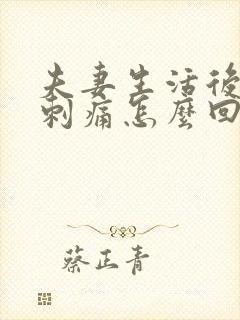 夫妻生活後
刺痛怎麼回
蔡正青